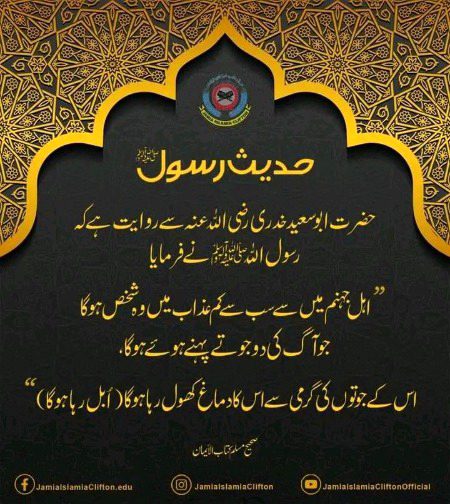 JAMIA ISLAMIA CLIFTON
حدیث رسول ﷺ
حضرت ابو سعید خدری رضی اللہ عنہ سے روایت ہے کہ
رسول اللہ ﷺ نے فرمایا
”اہل جہنم میں سے سب سے کم عذاب میں وہ شخص ہوگا
جو آگ کی دو جوتے پہنے ہوئے ہوگا،
اس کے جوتوں کی گرمی سے اس کا دماغ کھول رہا ہوگا (اُبل رہا ہوگا)“
صحیح مسلم، کتاب الایمان
JamiaIslamiaClifton.edu
JamiaIslamiaClifton
JamiaIslamiaCliftonOfficial